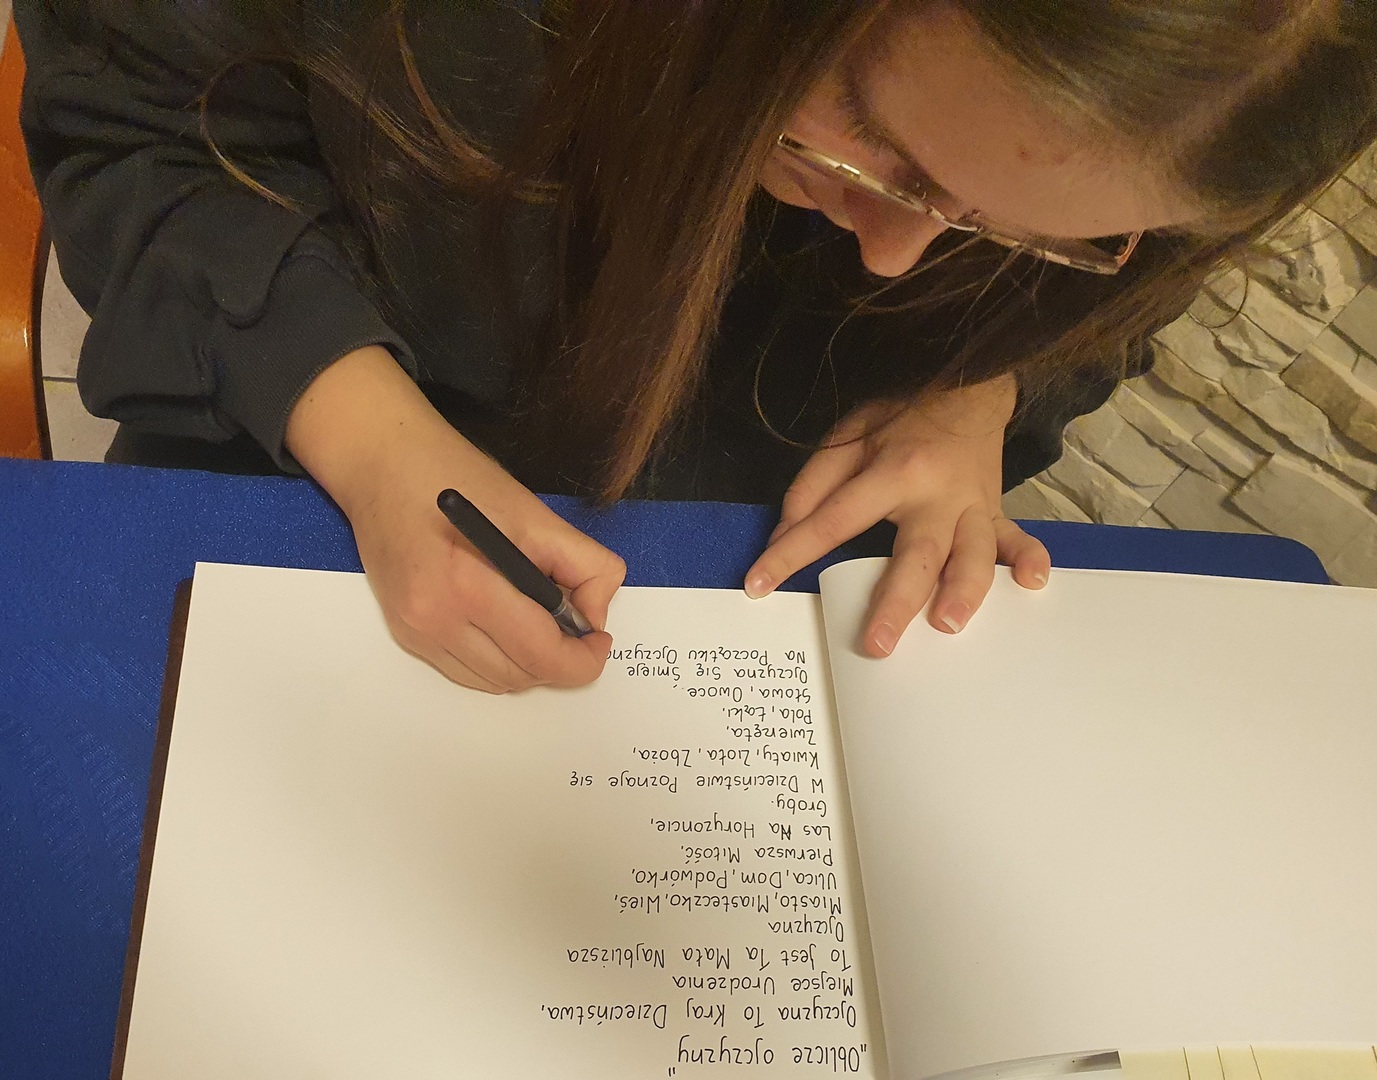 "Oblicze ojczyzny"
Ojczyzna To Kraj Dzieciństwa,
Miejsce Urodzenia
To jest Ta Mała Najbliższa
Ojczyzna
Miasto, Miasteczko, Wieś,
Ulica, Dom, Podwórko,
Pierwsza Miłość,
Las Na Horyzoncie,
Groby.
W Dzieciństwie Poznaje się
Kwiaty, Zioła, Zboża,
Zwierzęta,
Pola, Łąki,
Słowa, Owoce.
Ojczyzna Się Śmieje
Na Początku Ojczyzna